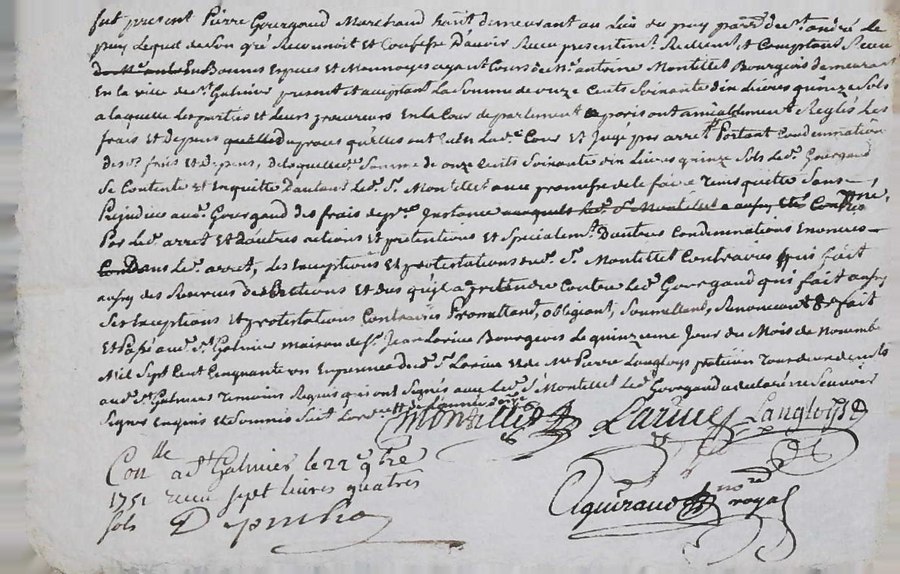 fut présent Pierre Gourgaud Marchand hant. demeurant au Lieu du puy parr.sse du st. andré le
puy Lequel de son gré Reconnoit et Confesse D'avoir Receu presentemt. Reelment et Comptand
En Bonnes Especes et Monnoyes ayant Cours de Mr. antoine Montillet Bourgeois demeurant
En la ville de st. Galmier present et acceptant La Somme de onze Cents Soixante dix Livres quinze Sols
a laquelle les parties et Leurs procureurs En La Cour de parlement de paris ont amiablement Reglés Les
frais et Depens du proces qu'elles ont En Lad. Cour et Jugé par arret Portant Condemnation
desd. frais et Depens, De Laquelle Somme de onze Cents Soixante dix Livres quinze Sols Led. Gourgaud
Se Contente et Enquitte D'autant Led. Sr. Montillet avec promesse de le faire Tenir quitte Sans
Prejudice aud. Gourgaud des frais de pre. Instance
Par Led. arret et d'autres actions et pretentions et Specialemt. D'autres Condemnations Enoncées
dans Led. arret, des Exceptions et protestations dud. Sr. Montillet Contraires qui fait
aussy des Reserves des actions et Droits qu'il a a pretendre Contre Led. Gourgaud qui fait aussy
Ses Exceptions et protestations Contraires Promettant, obligeant, Soumettant, Renonceant fait
et Passé aud. St. Galmier maison de Sr. Jean Larive Bourgeois Le quinzieme Jour du Mois de novembre
Mil Sept Cent Cinquante un En presence dud. Sr. Larive et de Me Pierre Langloys
aud. St. Galmier Temoins Requis qui ont Signés avec Led. Sr. Montillet Led. Gourgaud a declaré ne Scavoir
Signer Enquis et Sommé
Montillet Larive Langloys
Conlle a St. Galmier le 22 9bre
1751 receu sept livres quatres
sols
nore royal